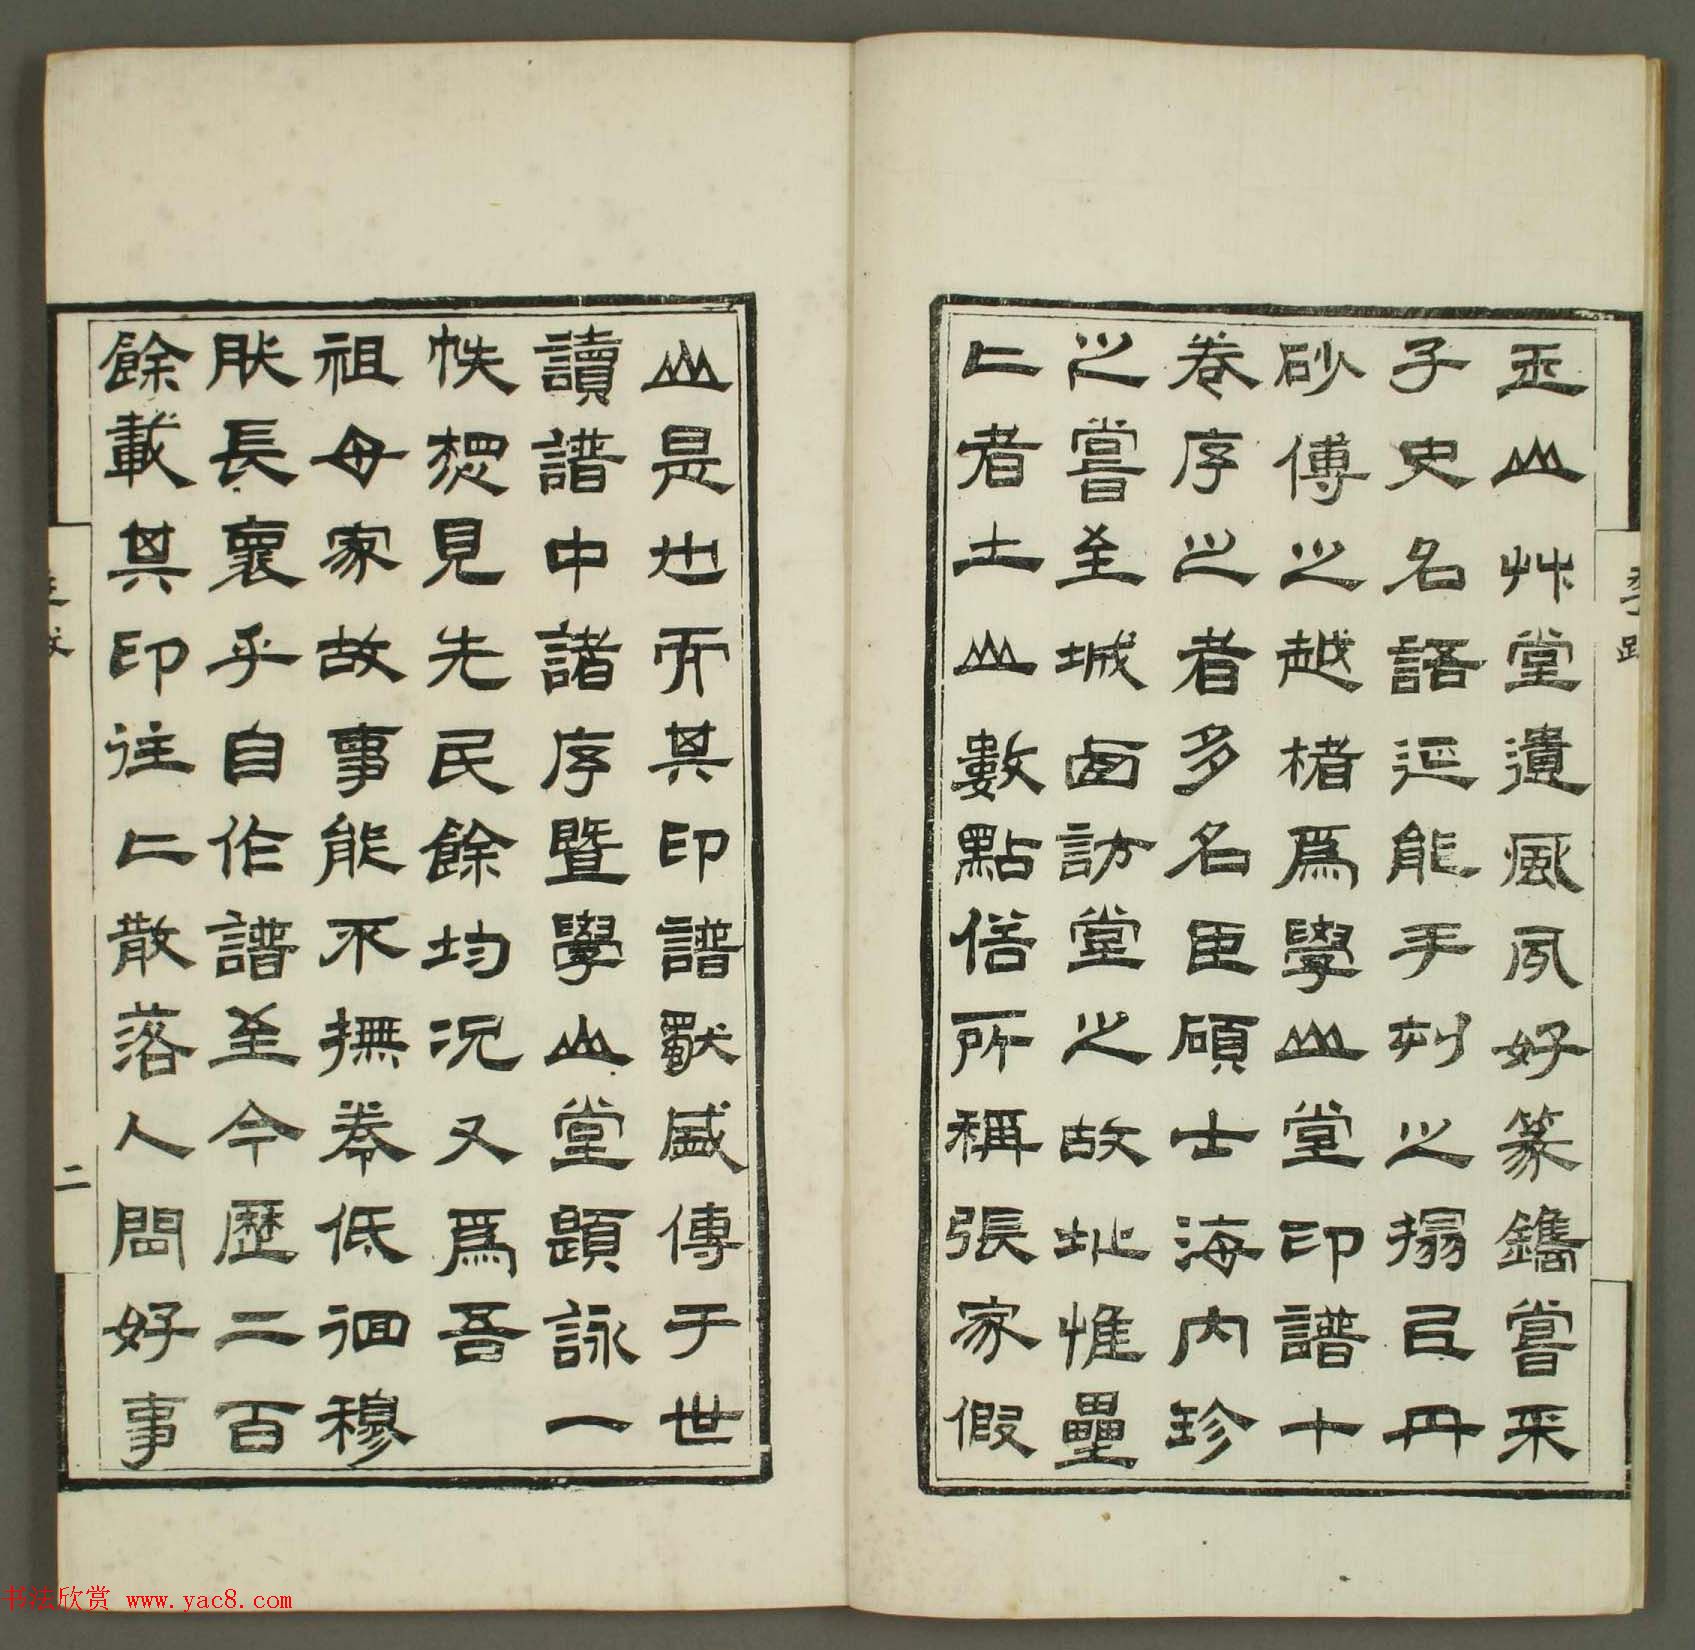 玉山艸堂遺風夙好篆鐫嘗采
子史名語延能手刻之搨㠯丹
砂傅之越楮爲學山堂印譜十
卷序之者多名臣碩士海内珍
之嘗至城西訪堂之故址惟壘
二者土山數點偣所稱張家假
山是也而其印譜獸盛傳于世
讀譜中諸序暨學山堂題詠一
帙想見先民餘均況又爲吾
祖母家故事能不撫卷低徊穆
肰長褱乎自作譜至今歷二百
餘載其印往二散落人間好事
二
书法欣赏 www.yac8.com